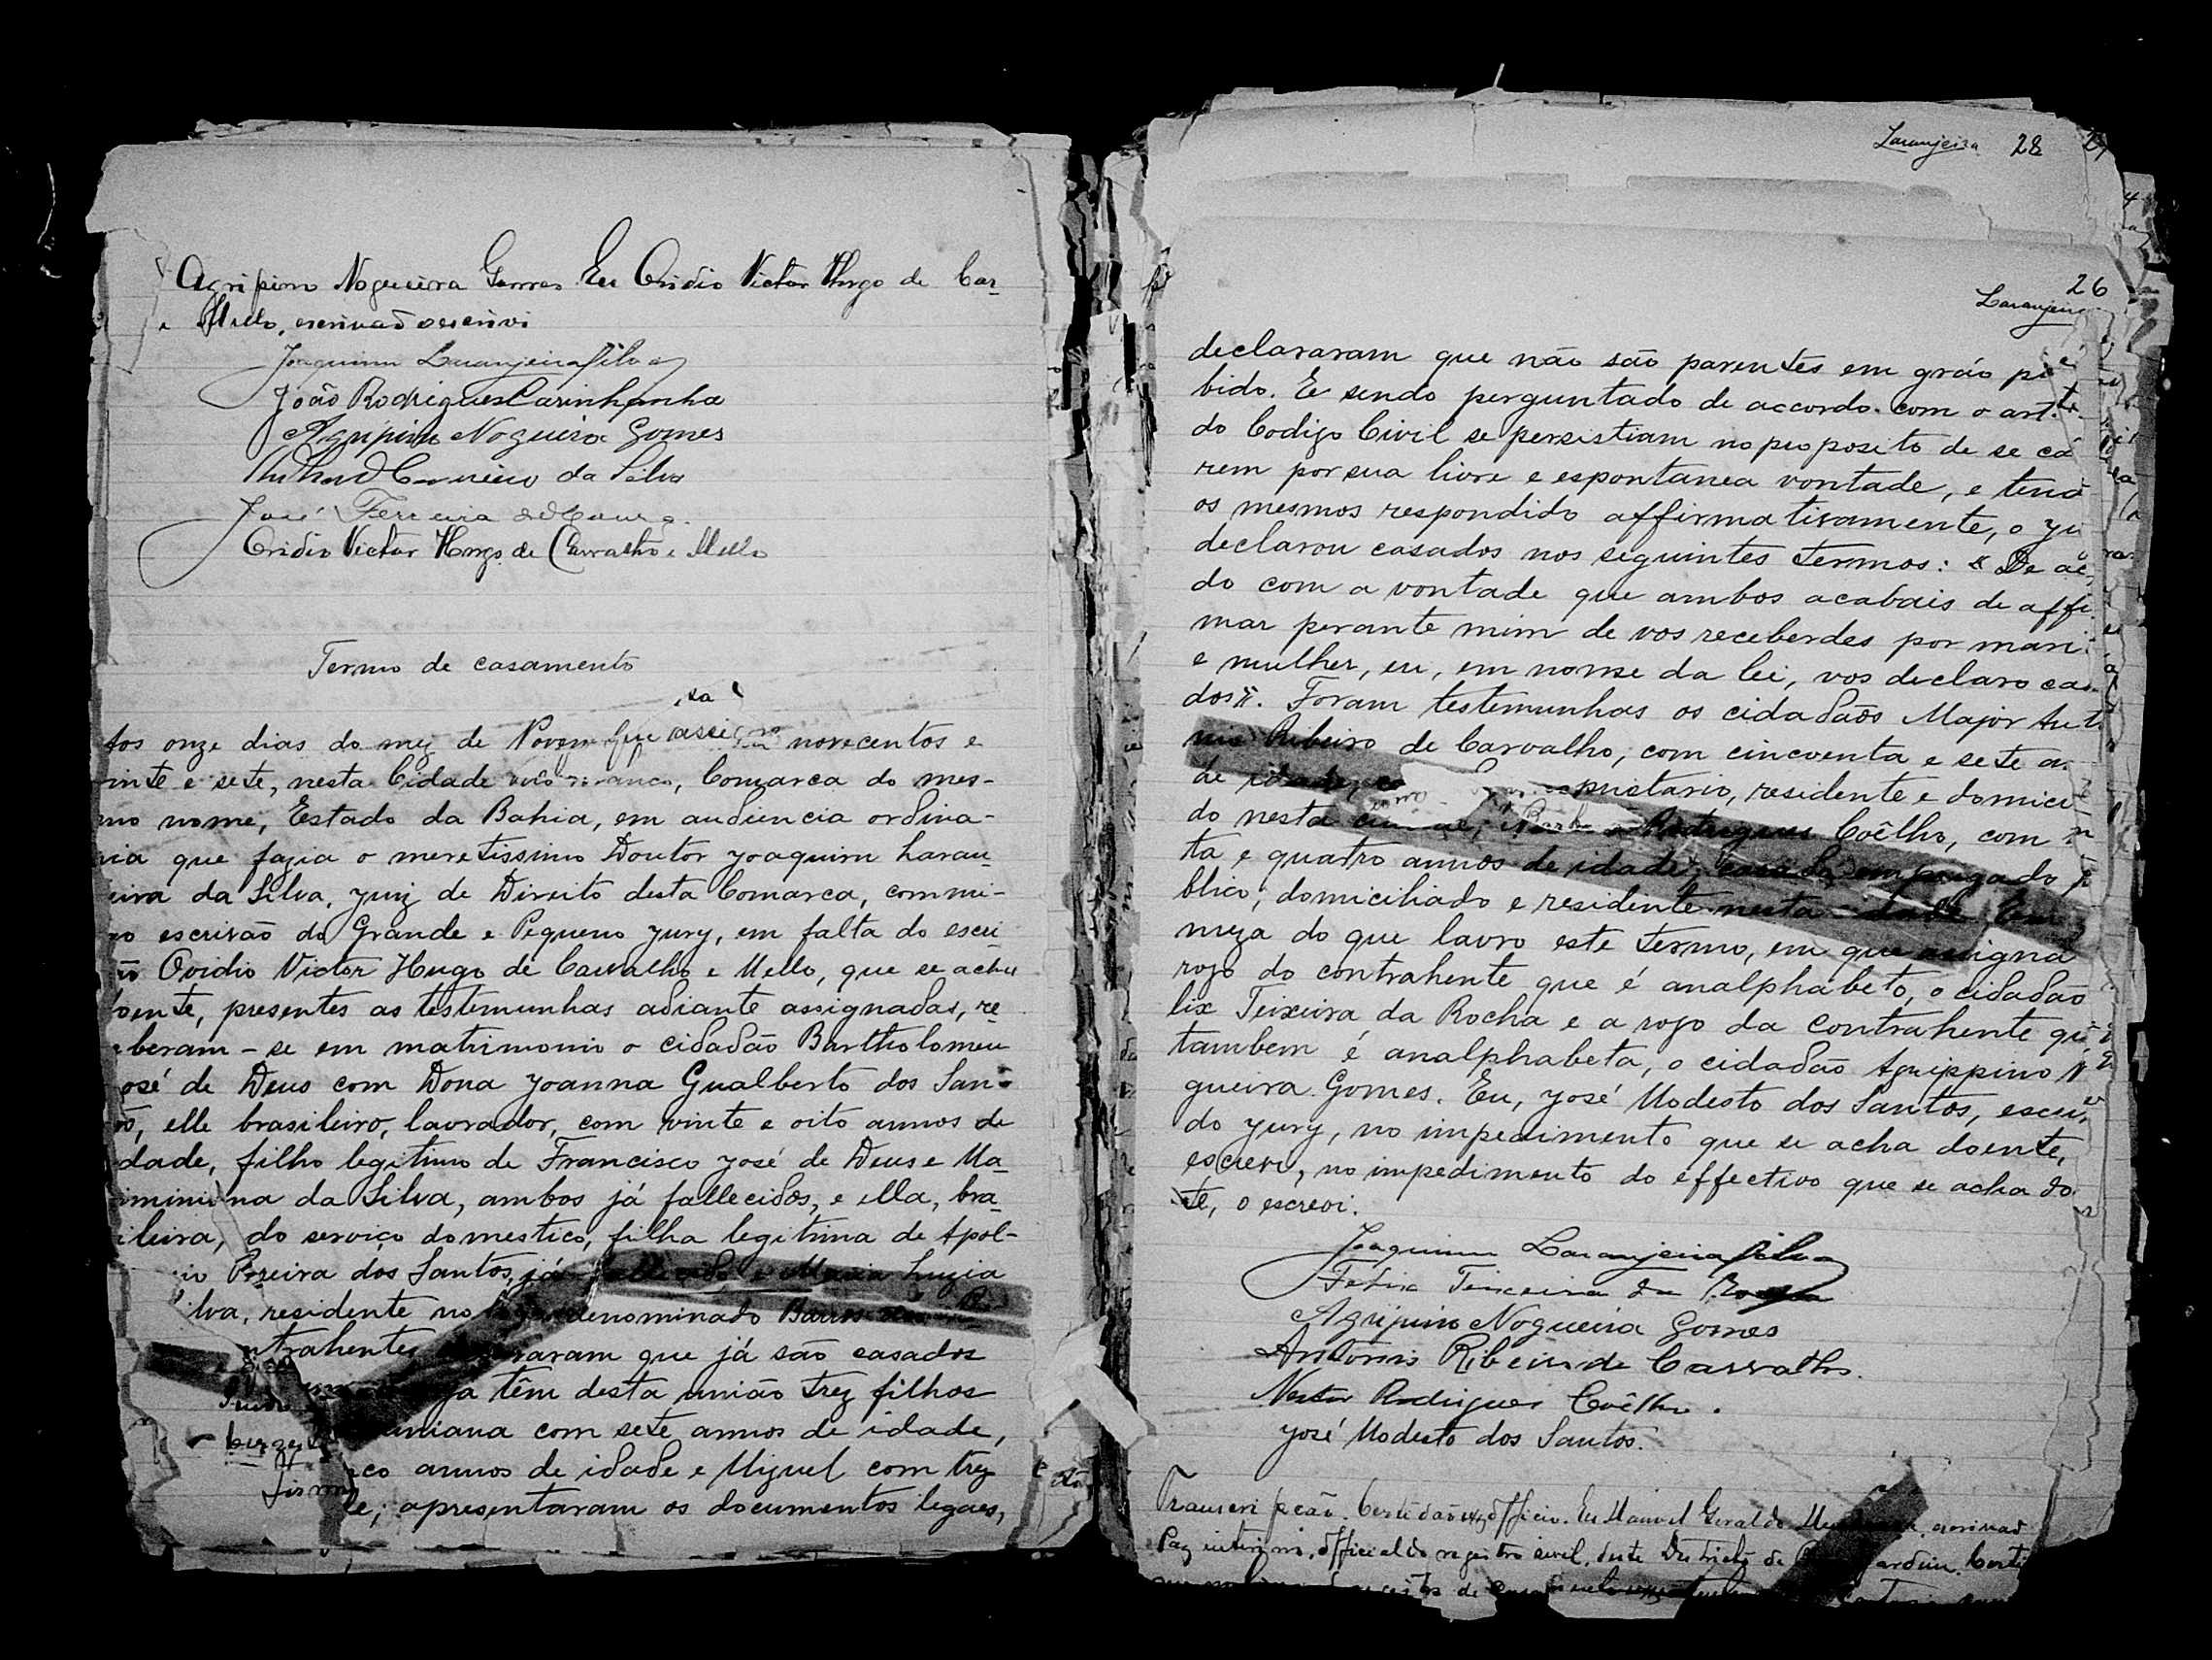 Agripino Nogueira Gomes. Eu Ovidio Victor Hugo de Car-
e Mello, escrivão o escrevi
Joaquim Laranjeira Silva
João Rodrigues Carinhanha
Agripino Nogueira Gomes
Carneiro da Silva
José Ferreira
Ovidio Victor Hugo de Carvalho e Mello
Termo de casamento
Aos onze dias do mez de Novem novecentos e
inte e sete, nesta Cidade , Comarca do mes-
mo nome, Estado da Bahia, em audiencia ordina-
ria que fazia o meretissimo Doutor Joaquim Laran-
eira da Silva, Juiz de Direito desta Comarca, commi-
go escrivão do Grande e Pequeno Jury, em falta do escri-
ão Ovidio Victor Hugo de Carvalho e Mello, que se acha
doente, presentes as testemunhas adiante assignadas, re-
ceberam-se em matrimonio o cidadão Bartholomeu
José de Deus com Dona Joanna Gualberto dos San-
os, elle brasileiro, lavrador, com vinte e oito annos de
idade, filho legitimo de Francisco José de Deus e Ma-
na da Silva, ambos já fallecidos, e ella, bra-
ileira, do serviço domestico, filha legitima de Apol-
Pereira dos Santos, já fallecido e Maria Luzia
ilva, residente no denominado Barros
ntrahentes raram que já são casados
ja têm desta união trez filhos
aniana com sete annos de idade,
co annos de idade e Miguel com trez
de; apresentaram os documentos legaes,
Laranjeira 28
26
Laranjeira
declararam que não são parentes em gráo pro
bido. E sendo perguntado de accordo com o art.
do Codigo Civil se persistiam no proposito de se ca
rem por sua livre e espontanea vontade, e tend
os mesmos respondido affirmativamente, o Ju
declarou casados nos seguintes termos: "De ac
do com a vontade que ambos acabais de affi
mar perante mim de vos receberdes por mari
e mulher, eu, em nome da lei, vos declaro ca
dos". Foram testemunhas os cidadãos Major Anto
nio Ribeiro de Carvalho, com cincoenta e sete a
de idade, prietario, residente e domici
do nesta Rodrigues Coêlho, com
ta e quatro annos de idade, casado empregado p
blico, domiciliado e residente nesta cidade. Em
meza do que lavro este termo, em que assigna
rogo do contrahente que é analphabeto, o cidadão
lix Teixeira da Rocha e a rogo da contrahente qu
tambem é analphabeta, o cidadão Agrippino N
gueira Gomes. Eu, José Modesto dos Santos, escri
do Jury, no impedimento que se acha doente,
escrevi, no impedimento do effectivo que se acha do
te, o escrevi.
Joaquim Laranjeira Silva
Felix Teixeira da Rocha
Agripino Nogueira Gomes
Antonio Ribeiro de Carvalho.
Nestor Rodrigues Coêlho.
José Modesto dos Santos.
Transcripção. Certidão officio. Eu Manoel Geraldo , escrivão
Paz interino, official do registro civil, deste Districto de ardim. Certi
de